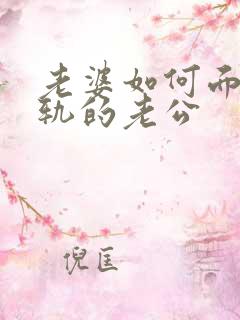 老婆如何而
轨的老公
倪匡